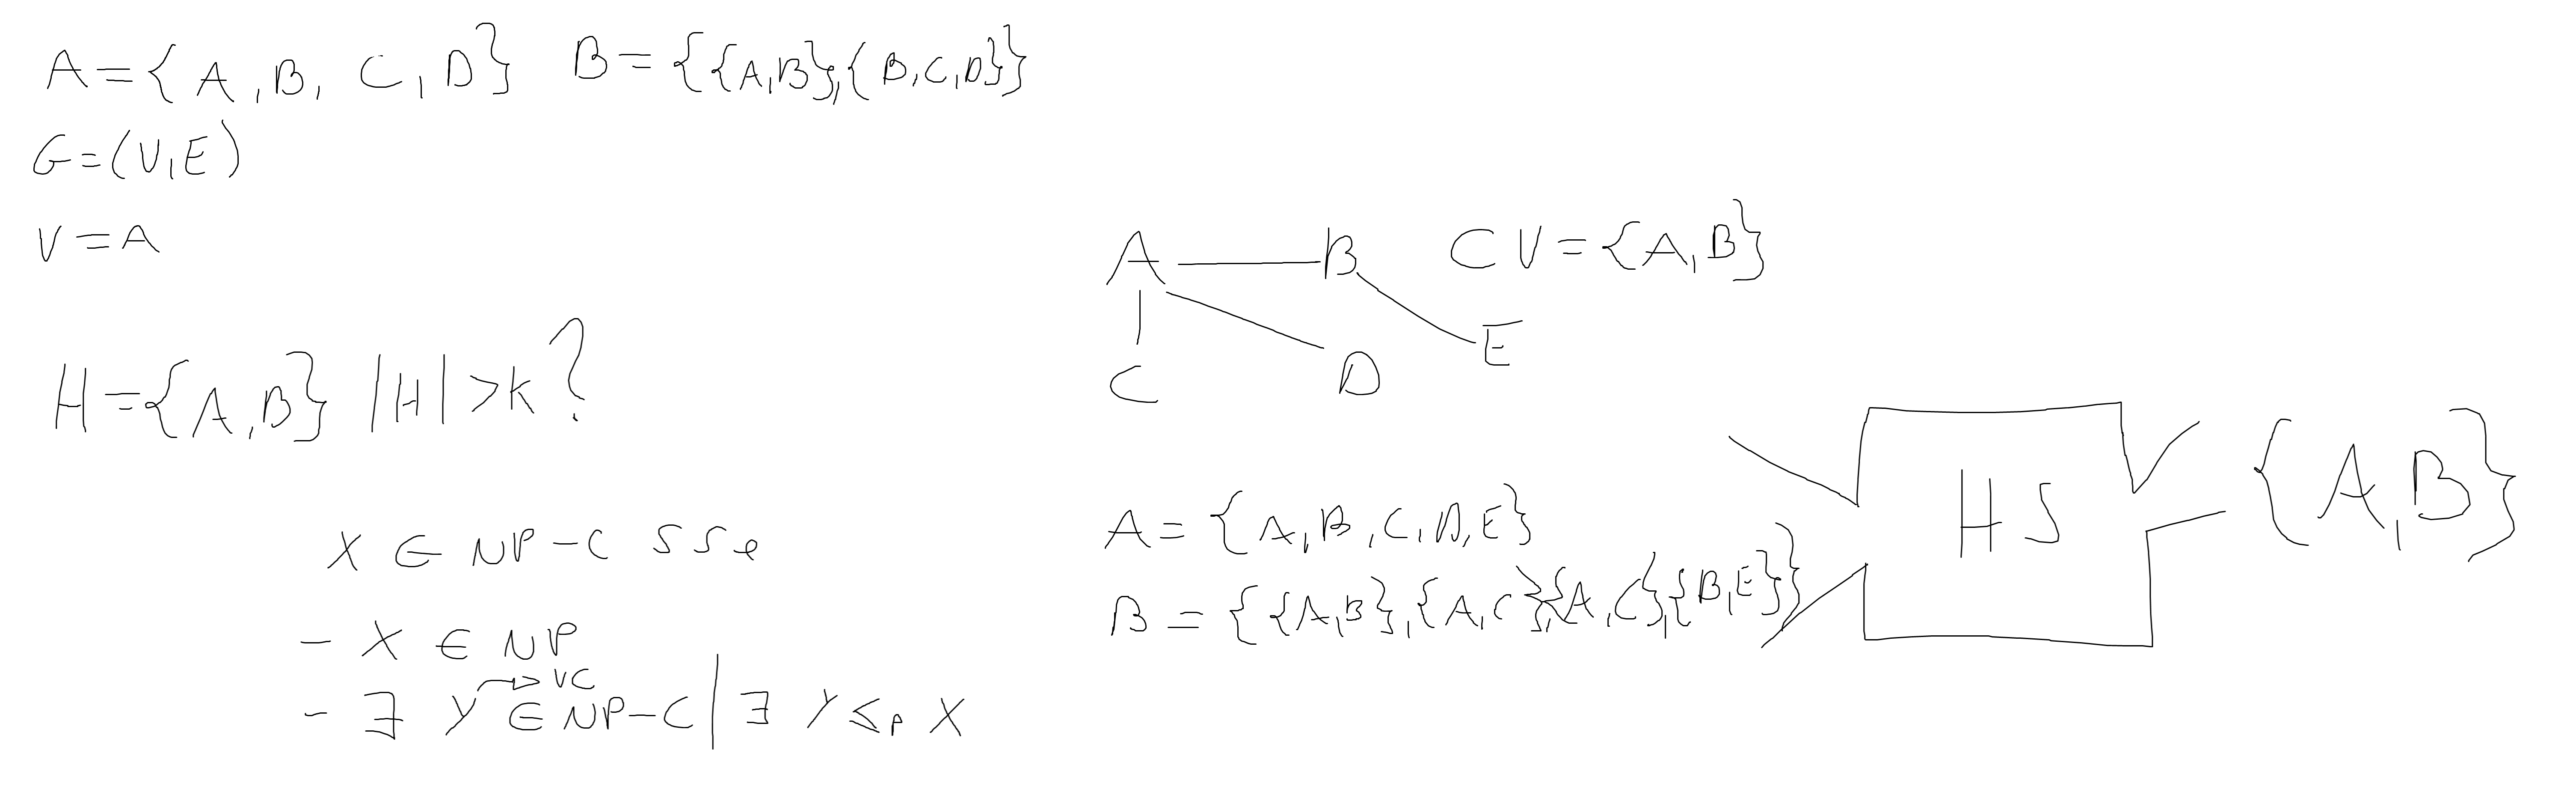 A={A,B,C,D} B={{A,B},{B,C,D}}
G=(V,E)
V=A
H={A,B} |H|>k?
X ∈ NP-C SSe
- X ∈ NP
- ∃ Y → VC ∈ NP-C | ∃ Y ≤p X
A B CV={A,B}
E
C D
A={A,B,C,D,E}
B={{A,B},{A,C},{A,C},{B,E}}
HS {A,B}